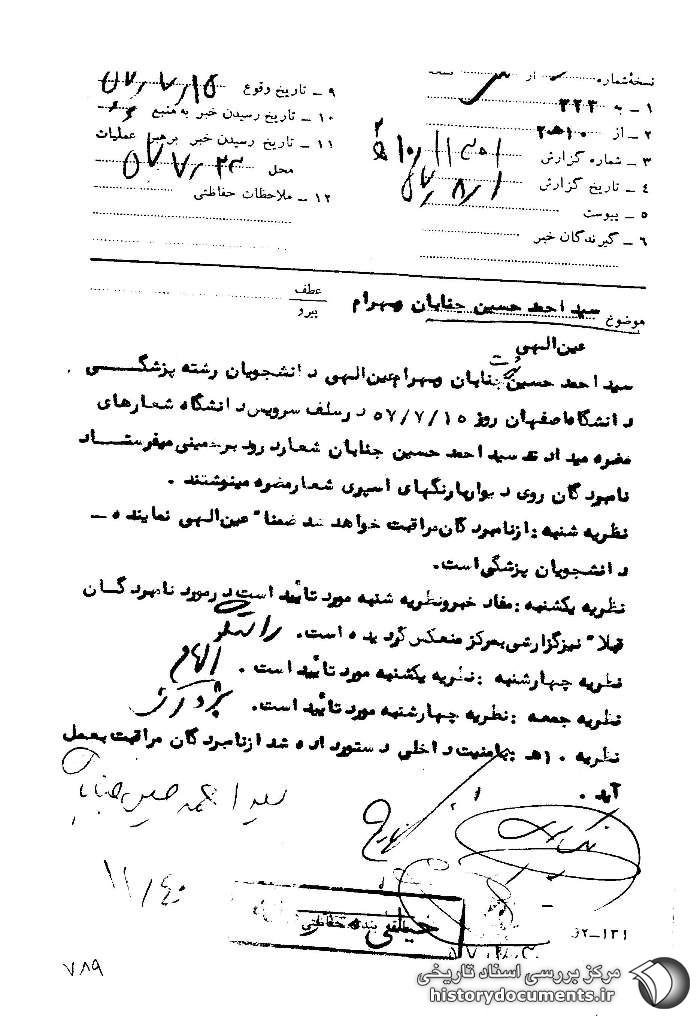 نسخهٔ شماره از نسخه
۱ ـ به ۳۲۳
۲ ـ از ۱۰هـ۲۰
۳ ـ شماره گزارش
۴ ـ تاریخ گزارش ۵۷/۸/۱
۵ ـ پیوست
۶ ـ گیرندگان خبر
۹ ـ تاریخ وقوع ۵۷/۷/۱۵
۱۰ ـ تاریخ رسیدن خبر به منبع
۱۱ ـ تاریخ رسیدن خبر برهبر عملیات
محل ۵۷/۷/۲۳
۱۲ ـ ملاحظات حفاظتی
موضوع سید احمد حسین جنابان وبهرام
عطف
پیرو
عین الهی
سید احمد حسین جنابان وبهرام عین الهی دانشجویان رشته پزشگی
دانشگاه اصفهان روز ۵۷/۷/۱۵ در سلف سرویس دانشگاه شعارهای
مضره میدادند سید احمد حسین جنابان شعار درود بر خمینی میفرستاد
نامبردگان روی دیوارها رنگهای اسپری شعار مضره مینوشتند .
نظریه شنبه : از نامبردگان مراقبت خواهد شد ضمنا" عین الهی نماینده ـ
دانشجویان پزشگی است.
نظریه یکشنبه : مفاد خبر ونظریه شنبه مورد تائید است در مورد نامبردگان
قبلا" نیز گزارشی بمرکز منعکس گردیده است.
نظریه چهارشنبه : نظریه یکشنبه مورد تائید است . الهام
نظریه جمعه : نظریه چهارشنبه مورد تائید است.
نظریه ۱۰هـ بامنیت داخلی دستور داده شد از نامبردگان مراقبت بعمل
آید .
سید احمد حسین جنابان
۱۱/۴۰
خیلی
طبقه بندی حفاظتی
۱۳۱ـ۲ف
۷۸۹
مرکز بررسی اسناد تاریخی
historydocuments.ir